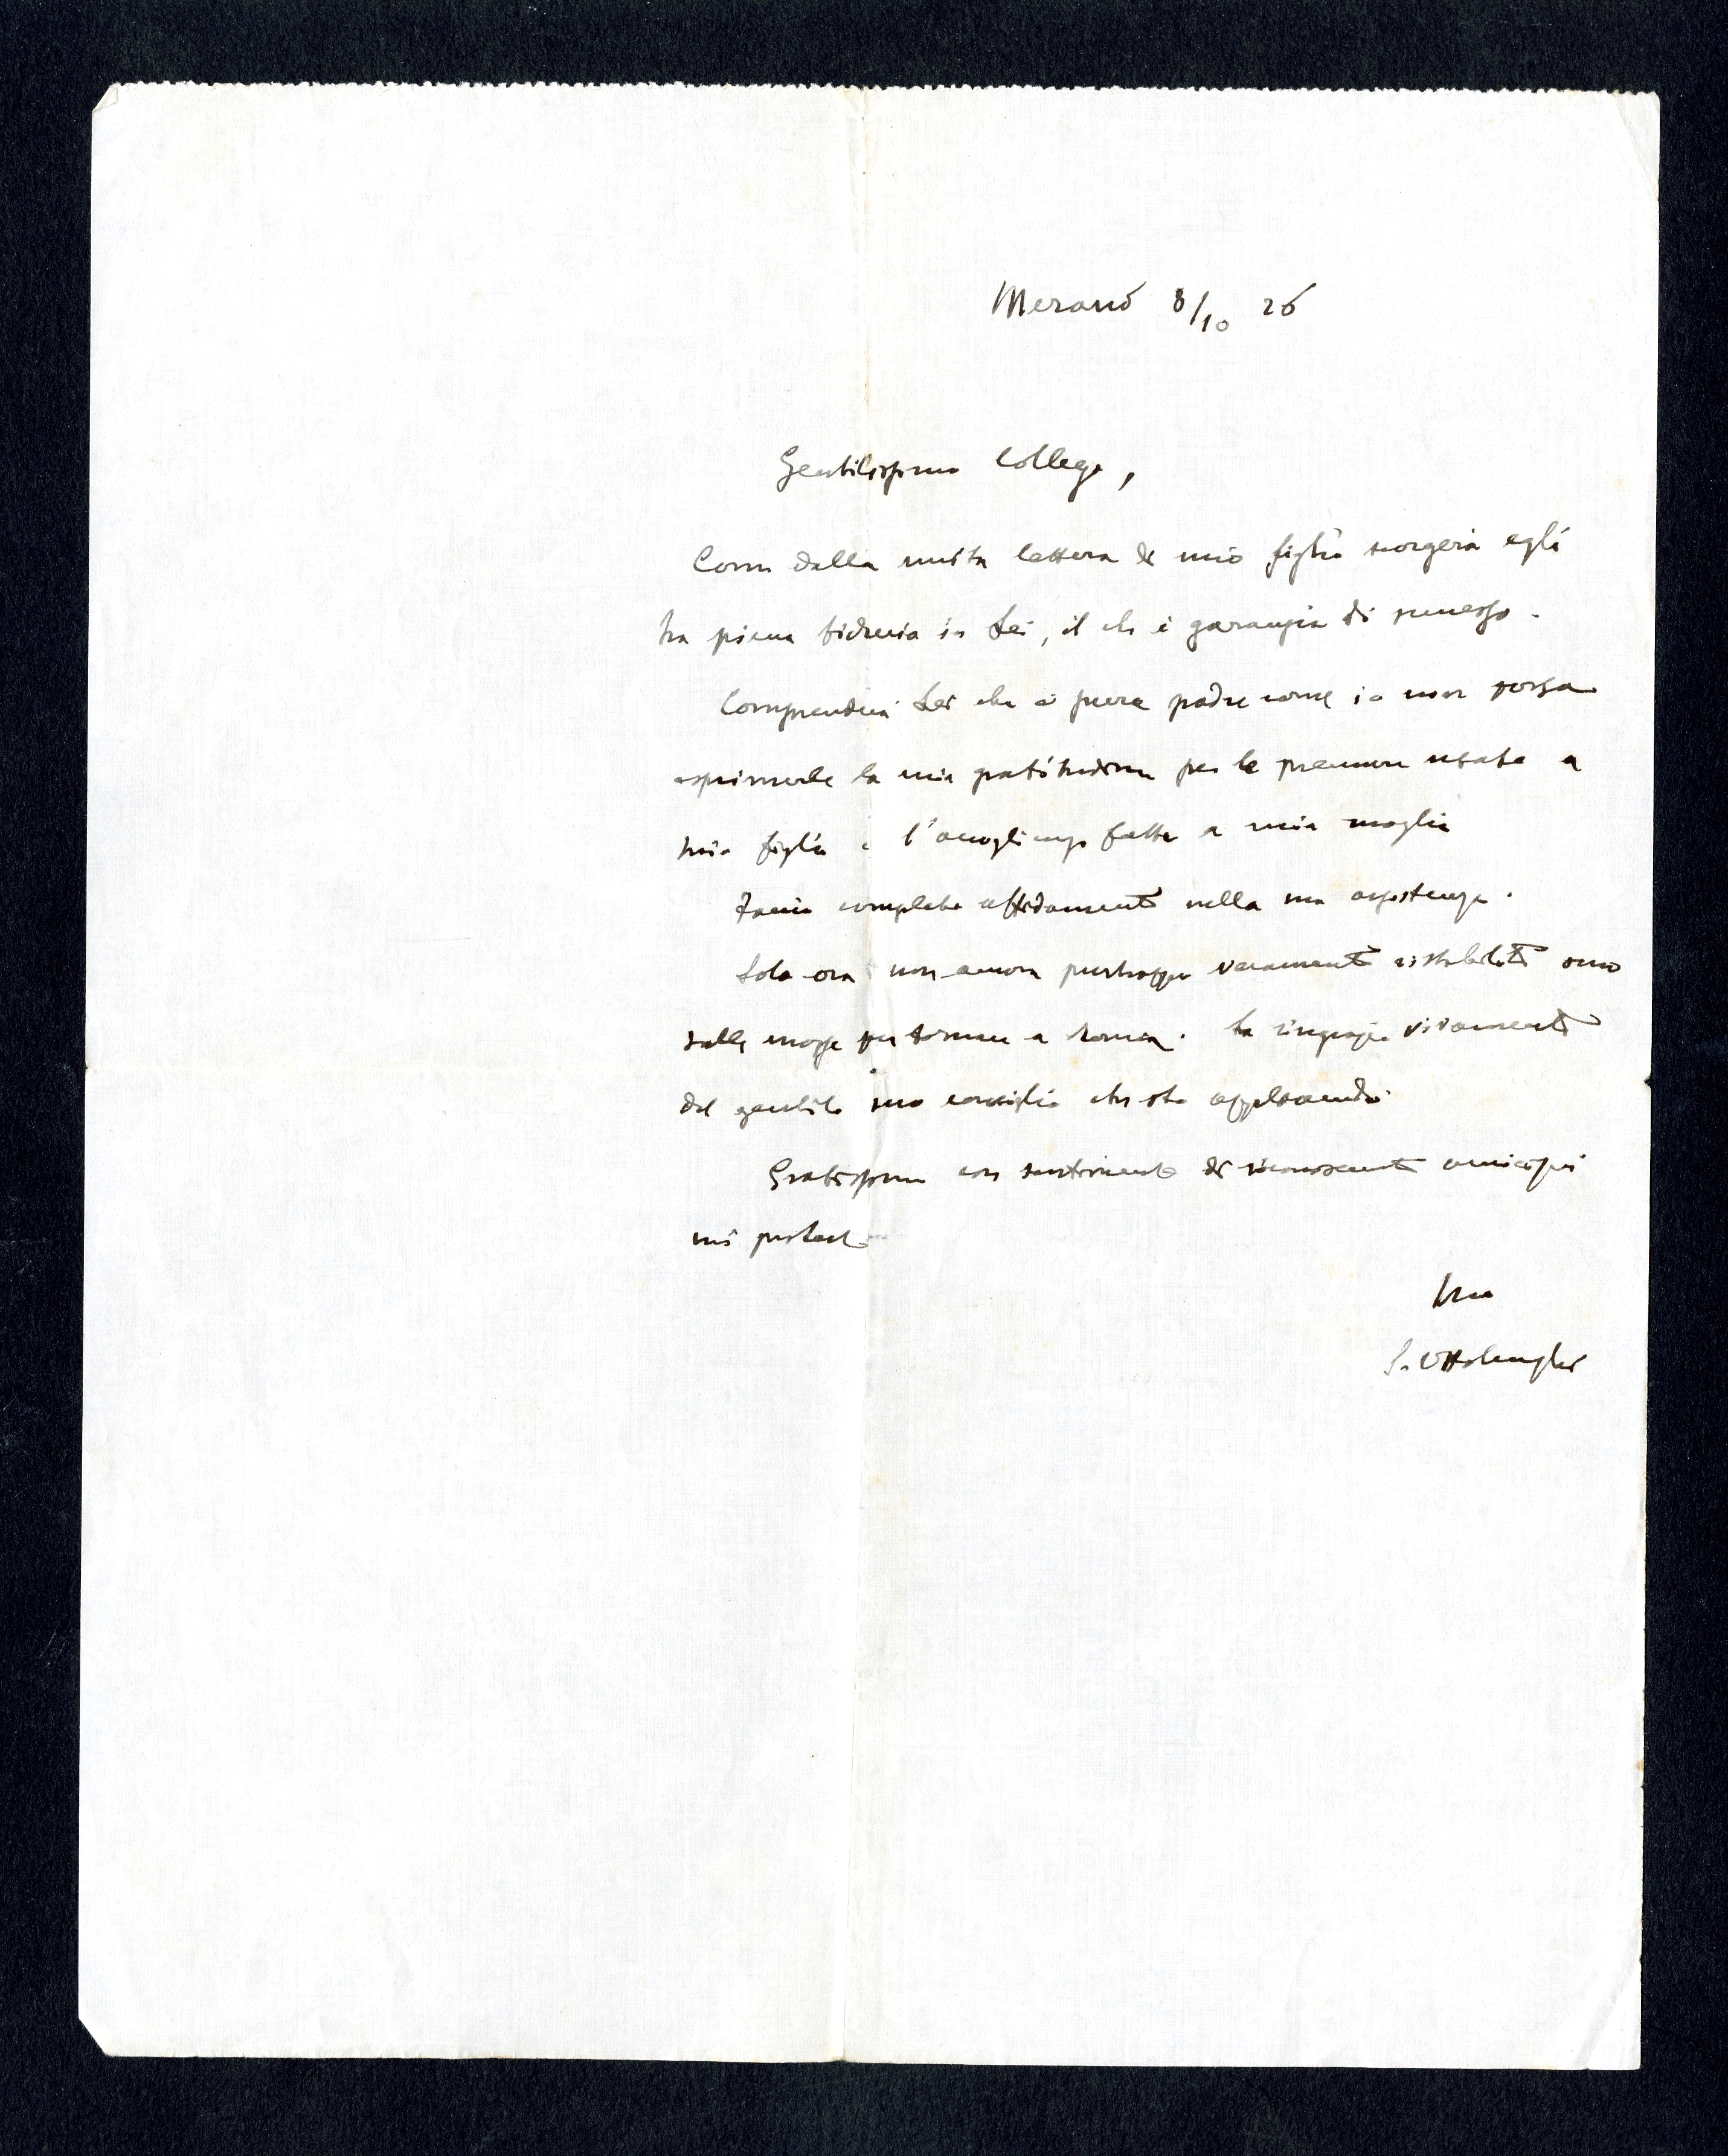 Merano 8/10 26
Gentilissimo Collega,
Come dalla unita lettera di mio figlio scorgerà egli
ha piena fiducia in Lei, il che è garanzia di successo.
Comprenderà Lei che è pure padre come io non possa
esprimerle la mia gratitudine per le premure usate a
mio figlio e l'accoglienza fatta a mia moglie
Faccio completo affidamento nella sua assistenza.
Solo ora non ancora purtroppo veramente ristabilito sono
sulle mosse per tornare a Roma. La ringrazio vivamente
del gentile suo consiglio che sto applicando.
Gratissimo con sentimento di riconoscente amicizia
mi protesto
Suo
S. Ottolenghi